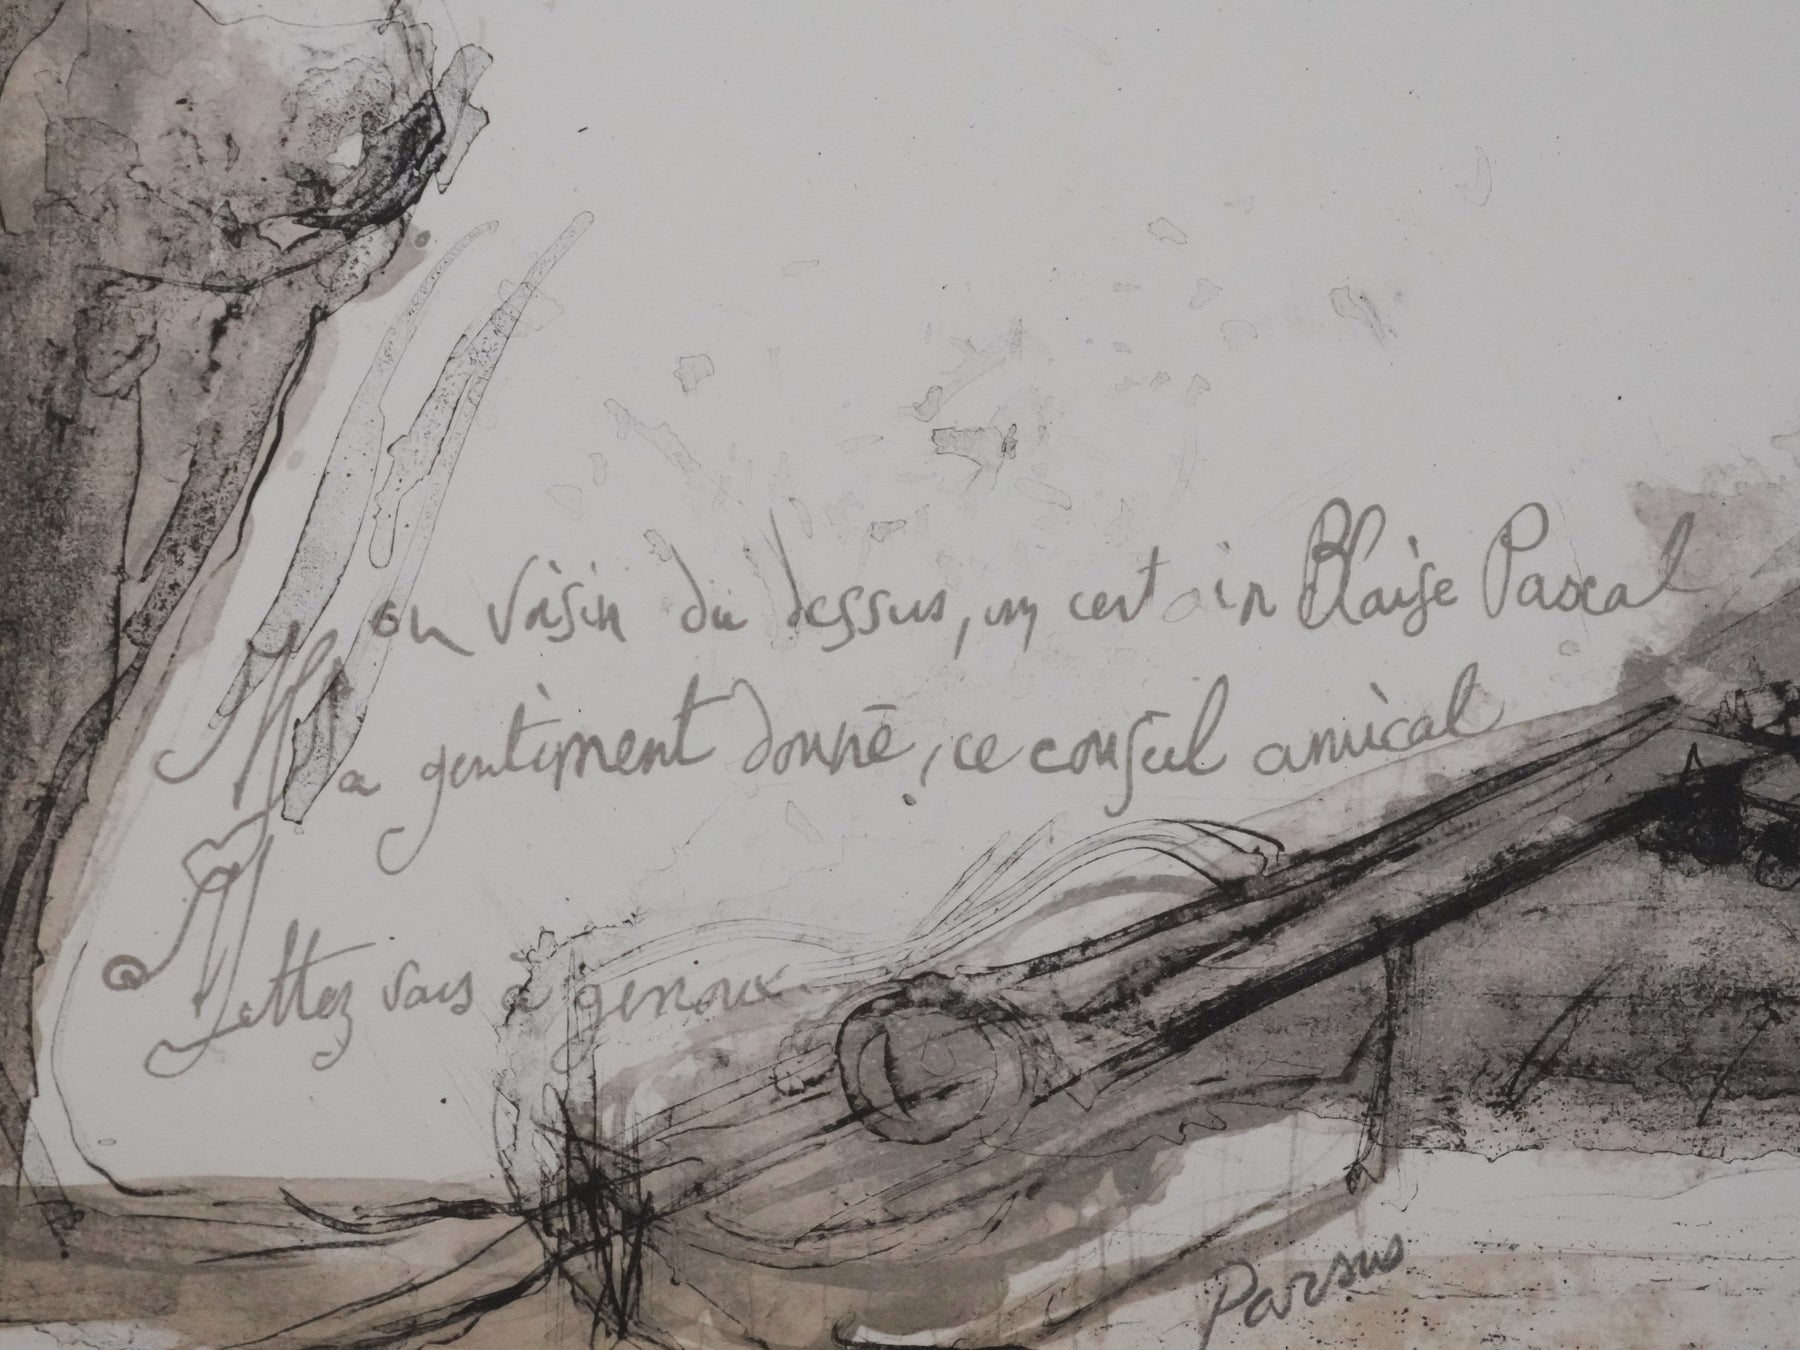 Mon voisin du dessus, un certain Blaise Pascal
M'a gentiment donné, ce conseil amical
Mettez vous à genoux
Parsus